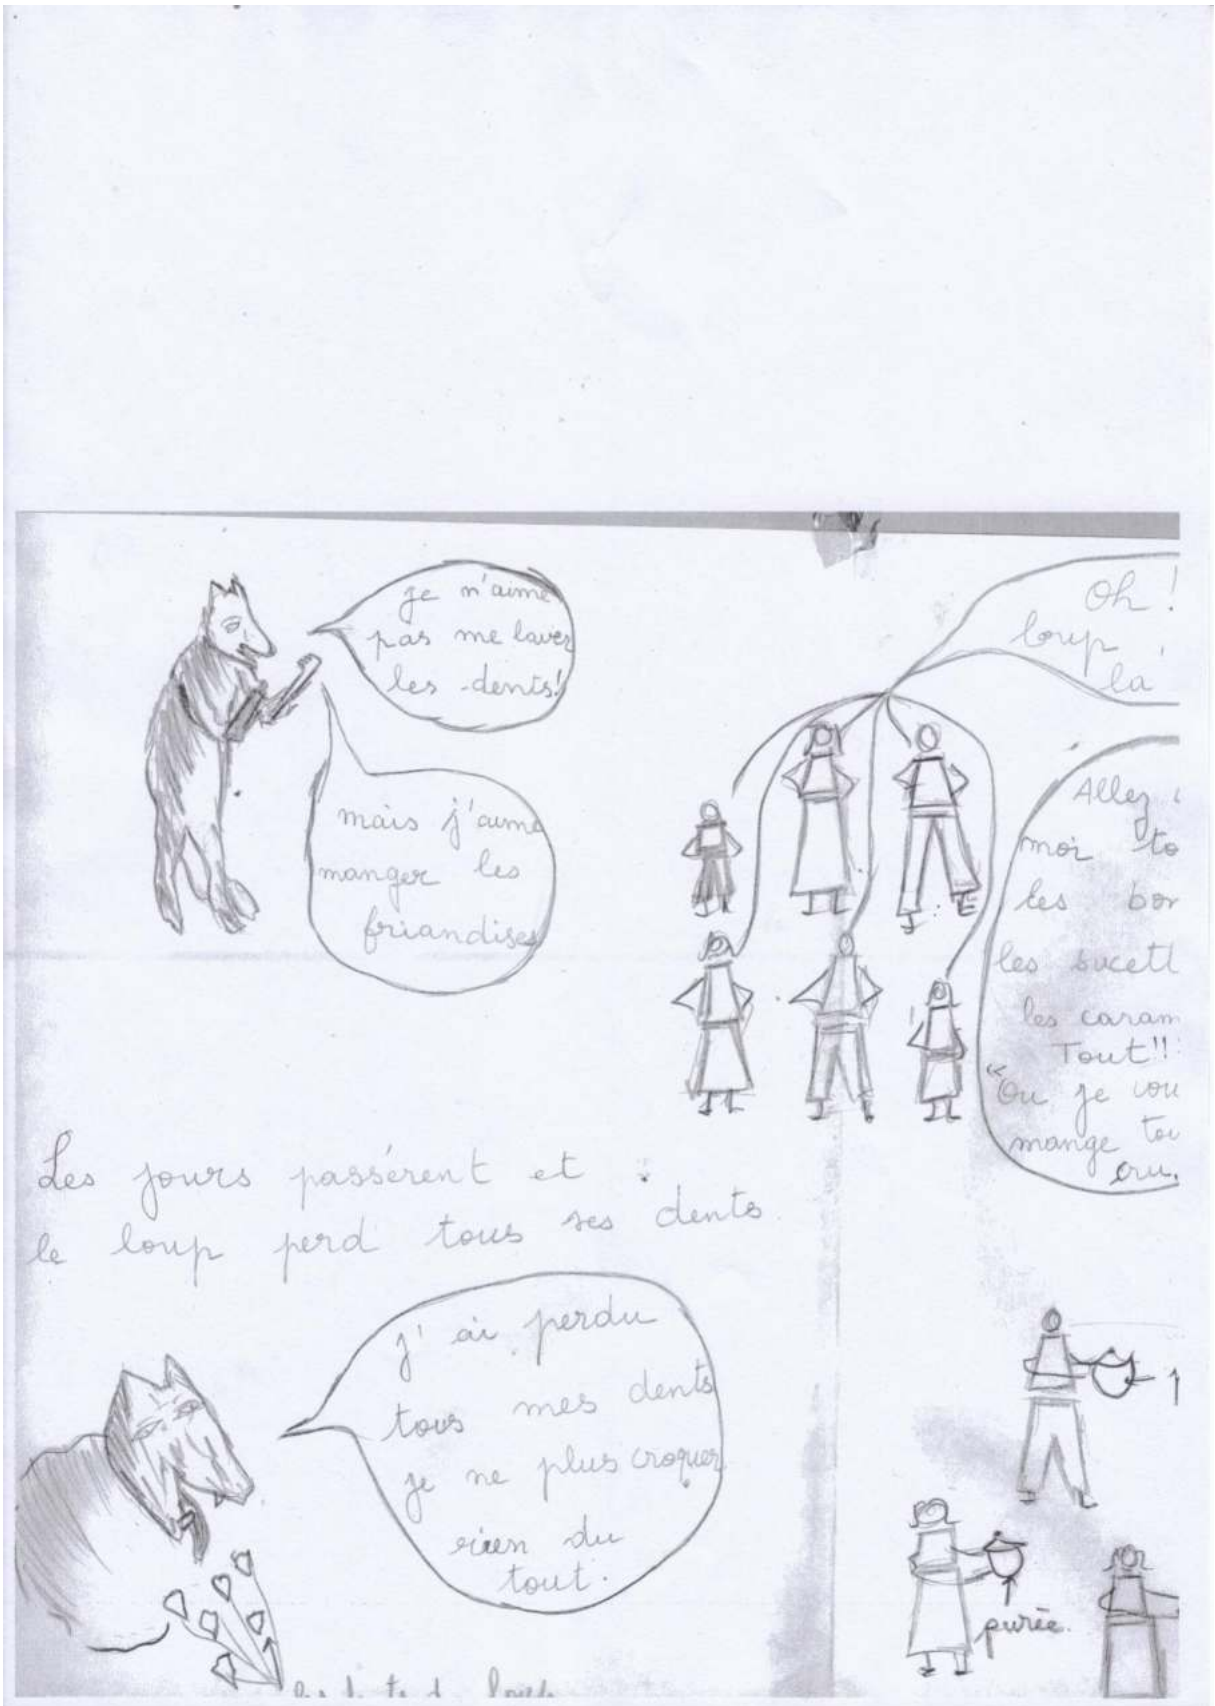 je n'aime
pas me laver
les dents!
mais j'aime
manger les
friandises
Oh !
loup
là
Allez
moi to
les bon
les sucett
les caram
Tout!!
"Ou je vou
mange tou
cru.
Les jours passérent et
le loup perd tous ses dents.
j'ai perdu
tous mes dents
je ne plus croquer
rien du
tout.
purée.